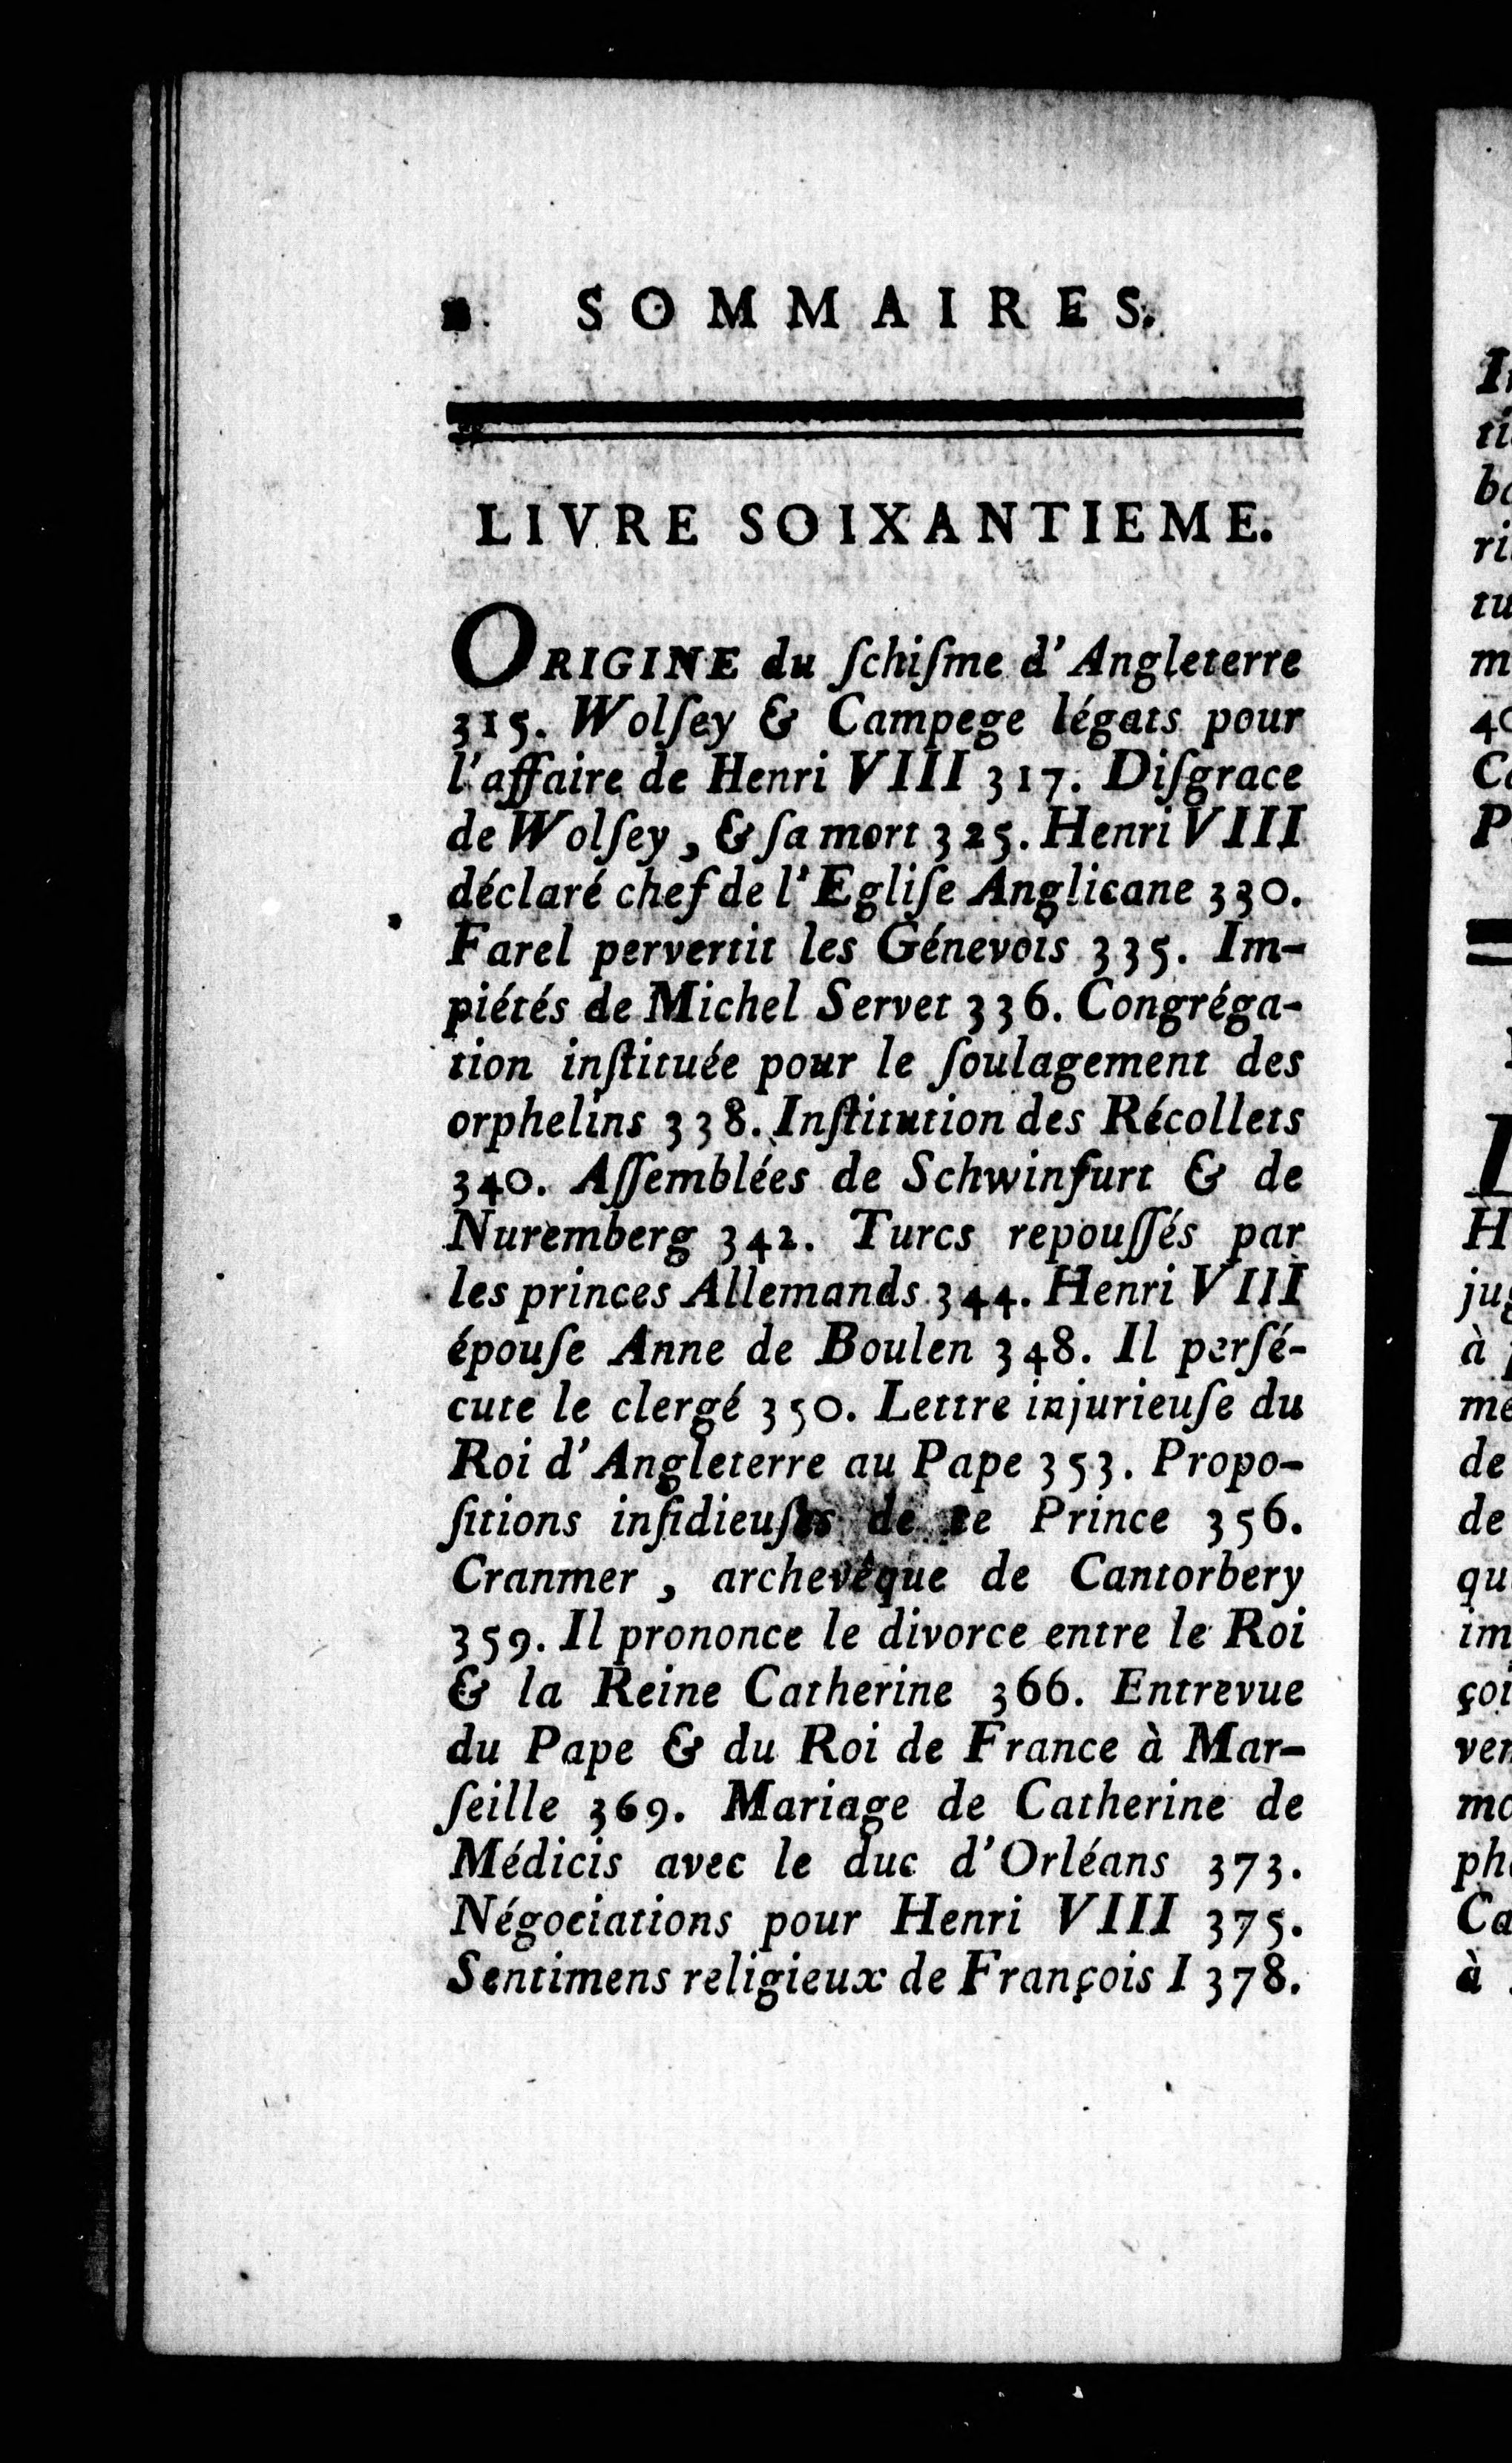 SOMMAIRES.
LIVRE SOIXANTIEME.
ORIGINE du ſchiſme d'Angleterre
315. Wolſey & Campege légats pour
l'affaire de Henri VIII 317. Diſgrace
de Wolſey, & ſa mort 325. Henri VIII
déclaré chef de l'Egliſe Anglicane 330.
Farel pervertit les Génevois 335. Im-
piétés de Michel Servet 336. Congréga-
tion inſtituée pour le ſoulagement des
orphelins 338. Inſtitution des Récollets
340. Aſſemblées de Schwinfurt & de
Nuremberg 342. Turcs repouſſés par
les princes Allemands 344. Henri VIII
épouſe Anne de Boulen 348. Il perſé-
cute le clergé 350. Lettre injurieuſe du
Roi d'Angleterre au Pape 353. Propo-
ſitions inſidieuſes de ce Prince 356.
Cranmer, archevêque de Cantorbery
359. Il prononce le divorce entre le Roi
& la Reine Catherine 366. Entrevue
du Pape & du Roi de France à Mar-
ſeille 369. Mariage de Catherine de
Médicis avec le duc d'Orléans 373.
Négociations pour Henri VIII 375.
Sentimens religieux de François I 378.